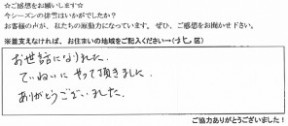 ☆ご感想をお願いします☆
今シーズンの排雪はいかがでしたか？
お客様の声が、私たちの原動力になっています。ぜひ、ご感想をお聞かせ下さい。
※差支えなければ、お住まいの地域をご記入ください→(北区)
お世話になりました。
ていねいにやって頂きました。
ありがとうございました。
ご協力ありがとうございました！